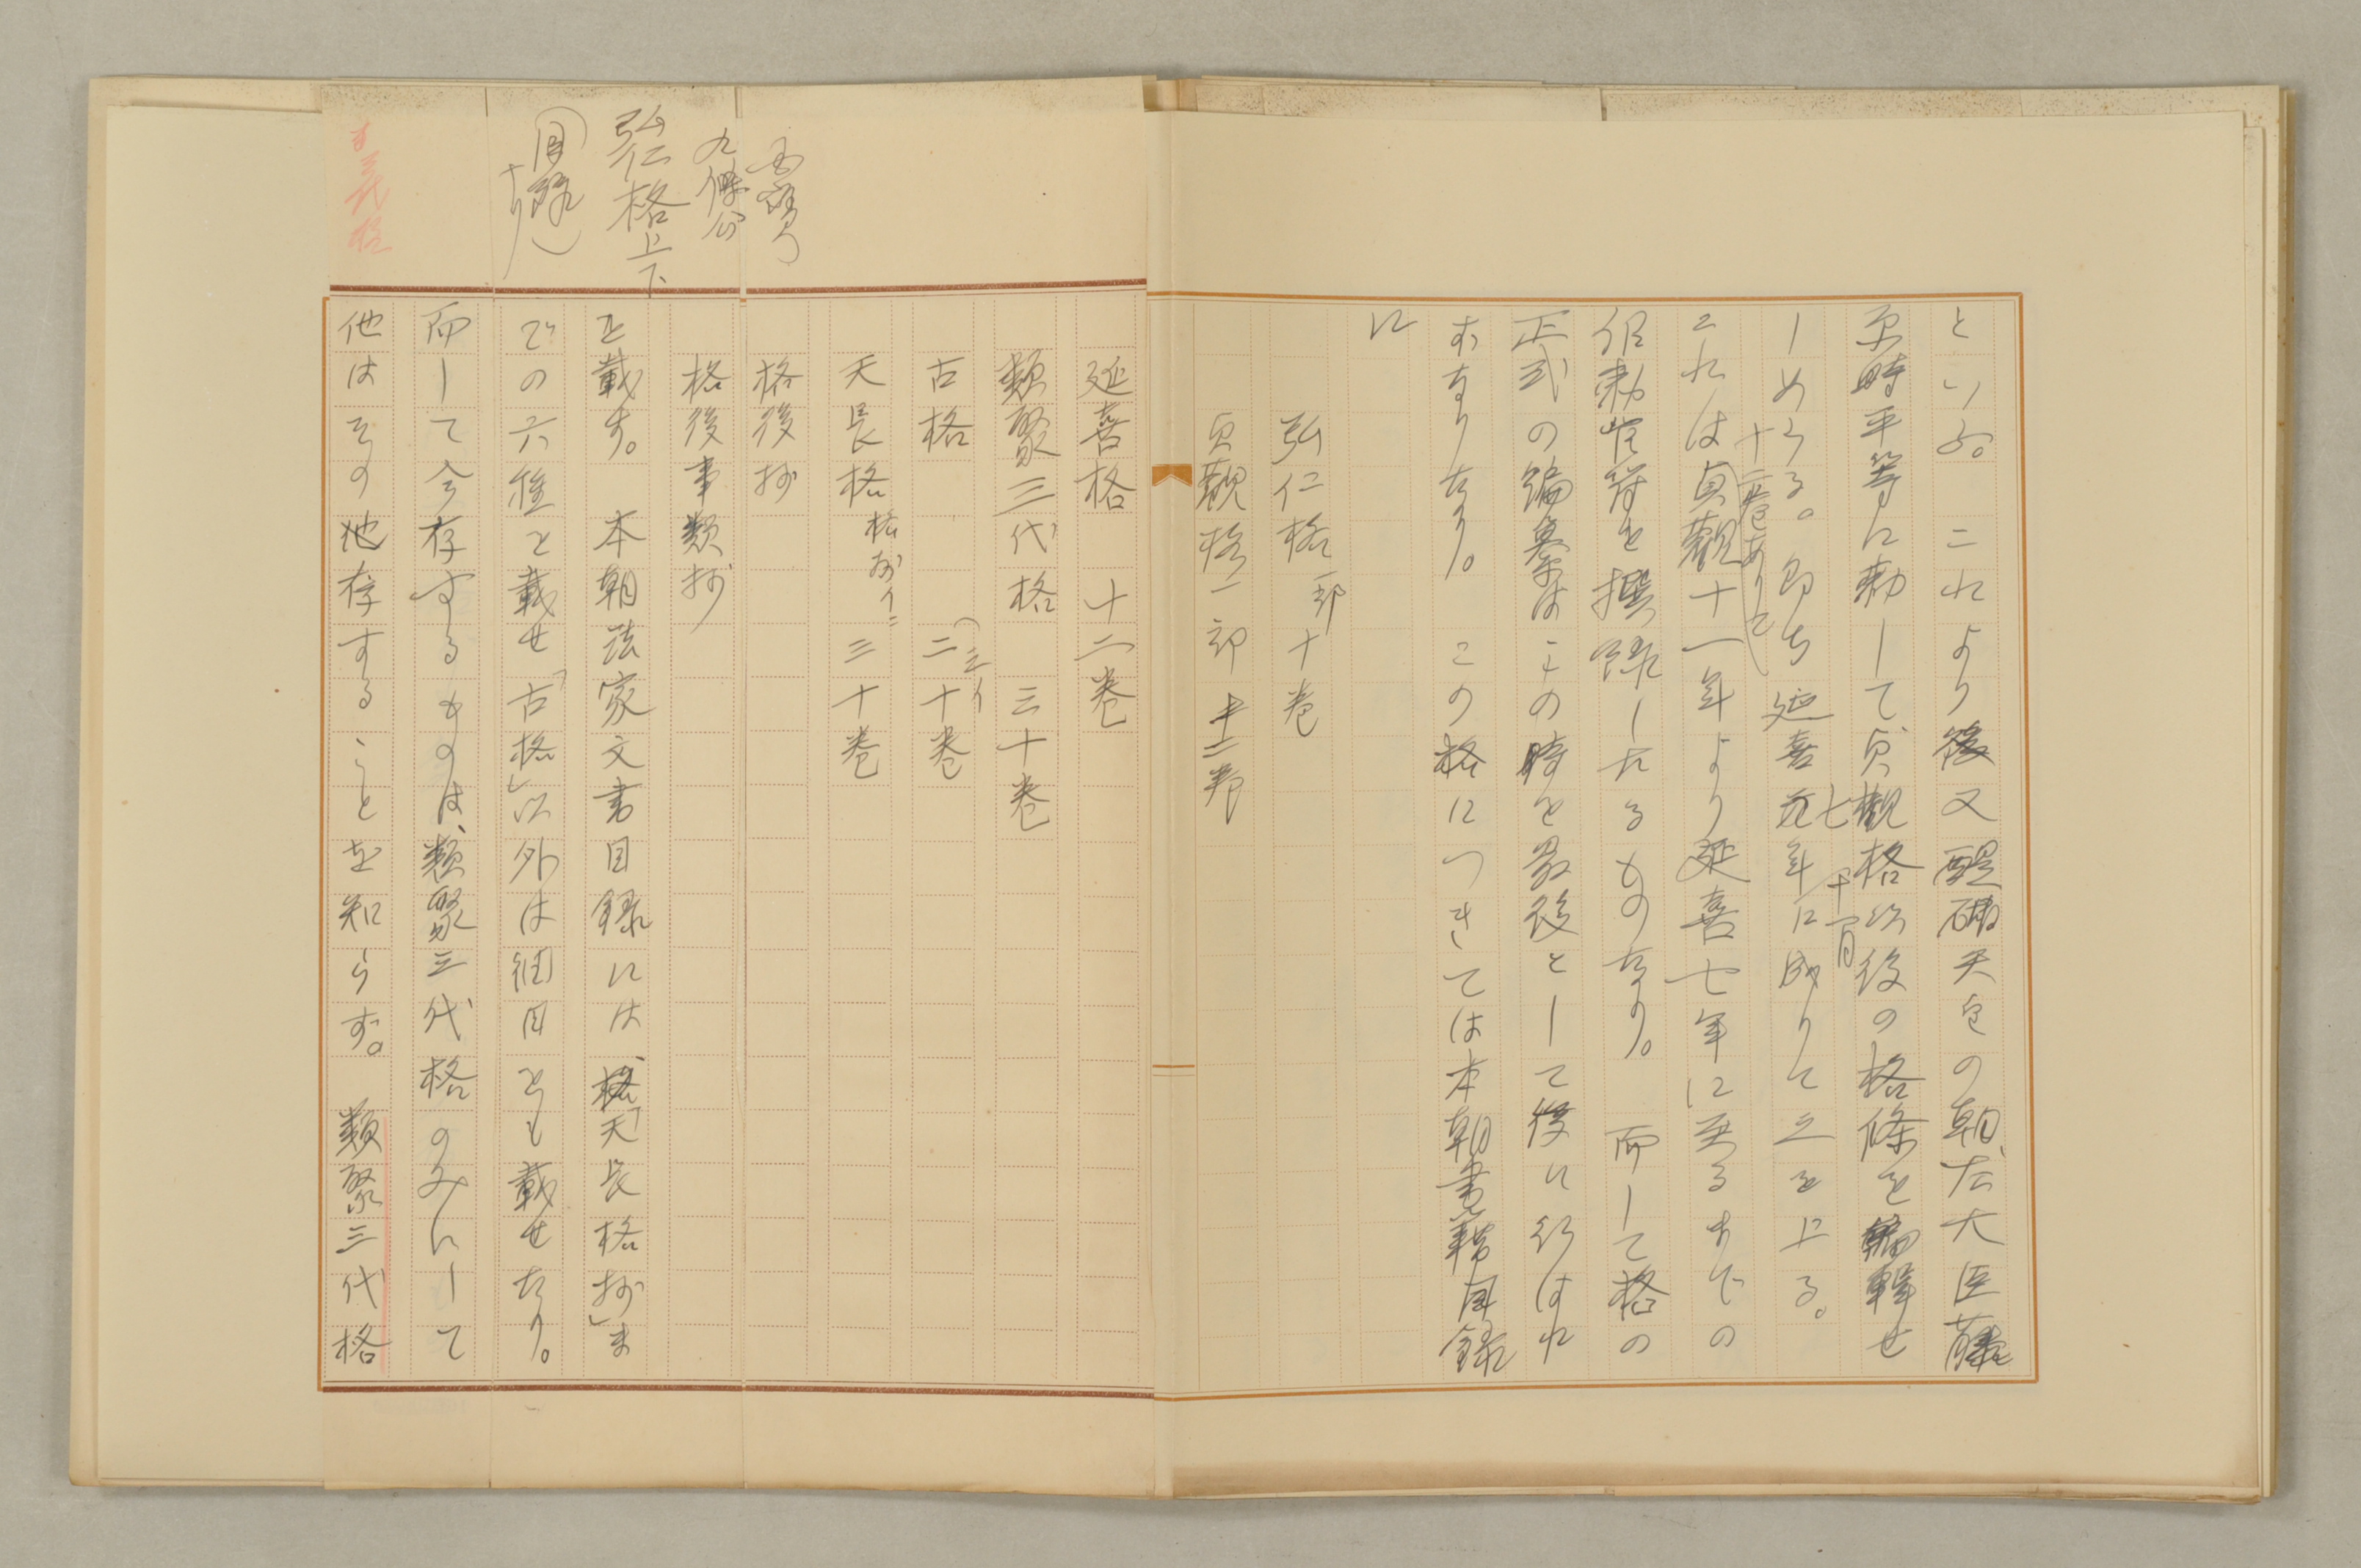 といふ。これより後又醍醐天皇の朝、左大臣藤
原時平等に勅して貞観格以後の格條を編輯せ
しめらる。即ち延喜七年十一月に成りて之を上る。
十二巻ありて
これは貞觀十一年より延喜七年に至るまでの
詔勅官符を撰録したるものなり。而して格の
正式の編纂はこの時を最後として後に行はれ
ずなりたり。この格につきては本朝書籍目録
に
弘仁格一部十巻
貞觀格一部十二巻
延喜格 十二巻
類聚三代格 三十巻
古格 二十巻
(三イ
天長格 三十巻
格抄イニ
格後抄
格後事類抄
を載す。本朝法家文書目録には、「天長格抄」ま
での六種を載せ「古格」以外は細目とも載せたり。
而して今存するものは、類聚三代格のみにして
他はその他存することを知らず。類聚三代格
九條公
弘仁格上下
(目録)
十り
三代格